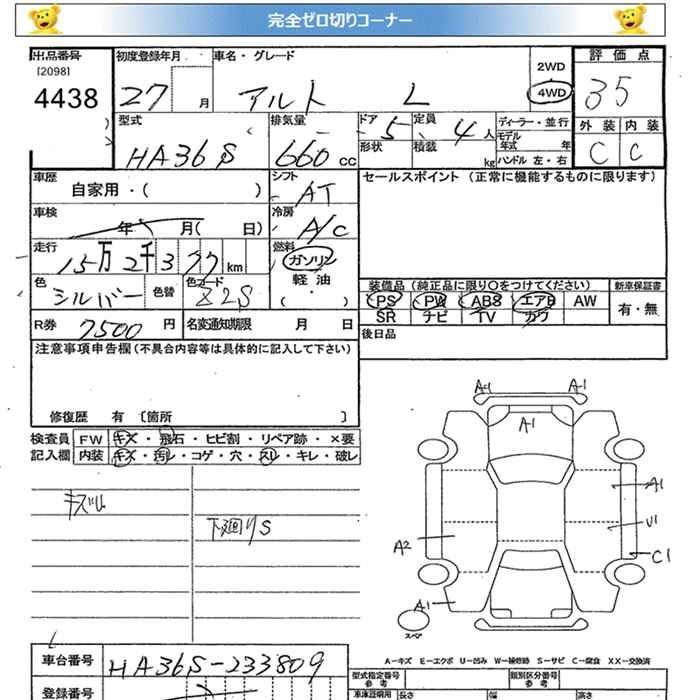 完全ゼロ切りコーナー
出品番号
[2098]
4438
初度登録年月
27 月
車名・グレード
アルト L
2WD
4WD
評価点
35
外装 内装
C C
型式
HA36S
排気量
660 cc
ドア 5
形状
定員 4 人
積載 kg
ディーラー・並行
モデル年式 年
ハンドル 左・右
車歴
自家用・( )
シフト
AT
セールスポイント (正常に機能するものに限ります)
車検
年 月( 日)
冷房
A/C
走行
15万2千377 km
燃料
ガソリン
軽油
・( )
色
シルバー
色替
色コード
Z2S
装備品 (純正品に限り○をつけてください)
PS PW ABS エアB AW
SR ナビ TV カワ
新車保証書
有・無
R券 7500 円
名変通知期限 月 日
後日品
注意事項申告欄(不具合内容等は具体的に記入して下さい)
修復歴 有 〔箇所 〕
検査員
記入欄
FW キズ・飛石・ヒビ割・リペア跡・×要
内装 キズ・汚レ・コゲ・穴・スレ・キレ・破レ
下廻りS
A-1 A-1
A1
A1
U1
A2
C1
A1
スペア
A-キズ E-エクボ U-凹み W-補修跡 S-サビ C-腐食 XX-交換済
車台番号
HA36S-233809
登録番号
型式指定番号
参考
類別区分番号
参考
車庫証明用
長さ 幅 高さ